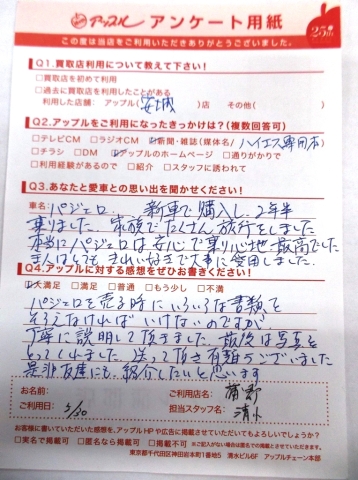 アップル アンケート用紙
25th
この度は当店をご利用いただきありがとうございました。
Q1.買取店利用について教えて下さい！
□買取店を初めて利用
□過去に買取店を利用したことがある
利用した店舗： アップル（安城）店 その他（ ）
Q2.アップルをご利用になったきっかけは？（複数回答可）
□テレビCM □ラジオCM ☑新聞・雑誌（媒体名／ハイエース専用本）
□チラシ □DM ☑アップルのホームページ □通りがかりで
□利用経験があるので □紹介 □スタッフに誘われて
Q3.あなたと愛車との思い出を聞かせください！
車名：パジェロ、 新車で購入し、2年半
乗りました。家族でたくさん旅行をしました
本当にパジェロは安心で乗り心地最高でした
きれい好きで大事に使用しました。
Q4.アップルに対する感想をぜひお書きください！
☑大満足 □満足 □普通 □もう少し □不満
パジェロを売る時にいろいろな書類を
そろえなければいけないのですが、
丁寧に説明して頂きました。最後は写真を
とってくれました。送って頂き有難うございました
是非友達にも紹介したいと思います
お名前： ご利用店名： 蒲郡
ご利用日： 5/30 担当スタッフ名： 清水
お客様に書いていただいた感想を、アップルHPや広告に掲載させていただいてもよろしいでしょうか？
□実名で掲載可 □匿名なら掲載可 □掲載不可 ※ご記入がない場合は匿名での掲載とさせていただきます。
東京都千代田区神田岩本町1番地5 清水ビル6F アップルチェーン本部